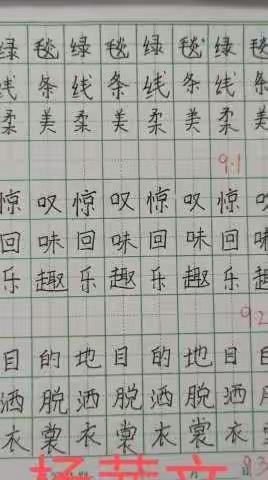 绿毯绿毯绿毯绿毯
线条线条线条线条
柔美柔美柔美柔美
9.1
惊叹惊叹惊叹惊叹
回味回味回味回味
乐趣乐趣乐趣乐趣
9.2
目的地目的地目
洒脱洒脱洒脱洒
衣裳衣裳衣裳衣裳
9.3